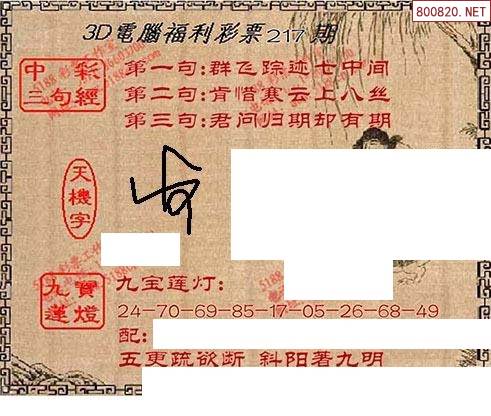 800820.NET
3D電腦福利彩票217期
中彩
三句經
第一句:群飞踪迹七中间
第二句:肯惜寒云上八丝
第三句:君问归期却有期
天機字
九寶
蓮燈
九宝莲灯:
24-70-69-85-17-05-26-68-49
配:
五更疏欲断 斜阳著九明